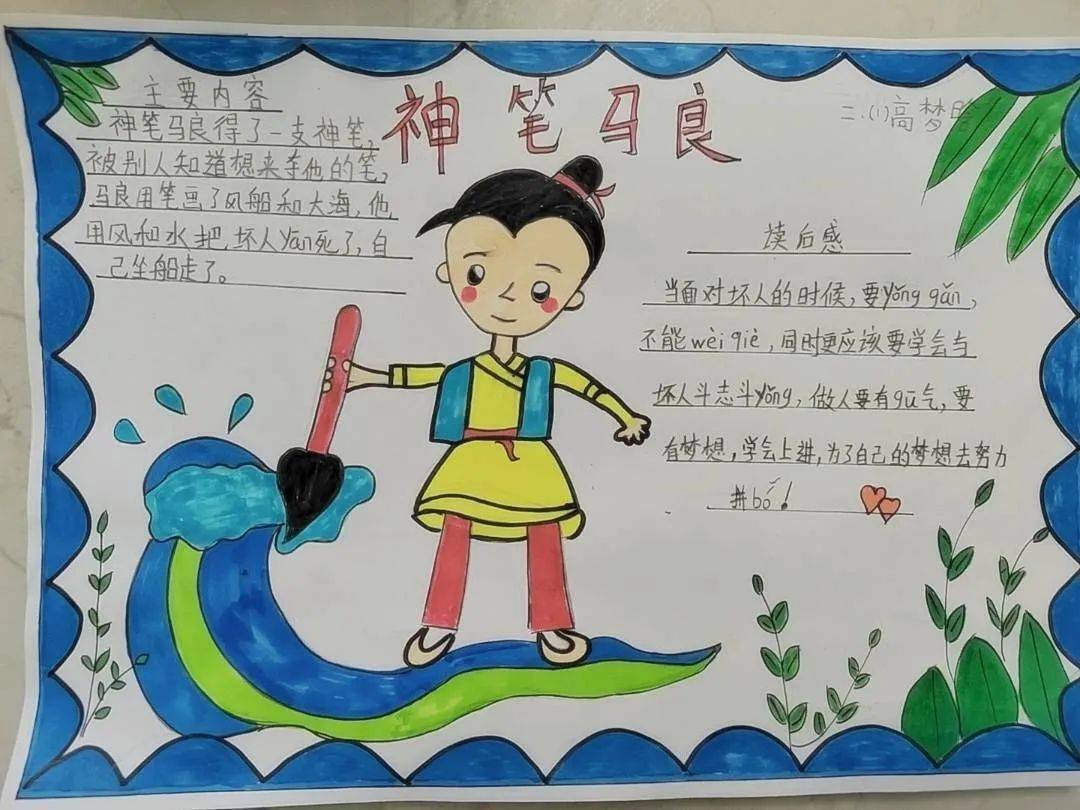 神笔马良
二.(1)高梦
主要内容
神笔马良得了一支神笔,
被别人知道想来夺他的笔,
马良用笔画了风船和大海,他
用风和水把,坏人yān死了,自
己坐船走了。
读后感
当面对坏人的时候,要yǒng gǎn,
不能wèi qiè,同时更应该要学会与
坏人斗志斗yǒng,做人要有gǔ气,要
有梦想,学会上进,为了自己的梦想去努力
拼bó!